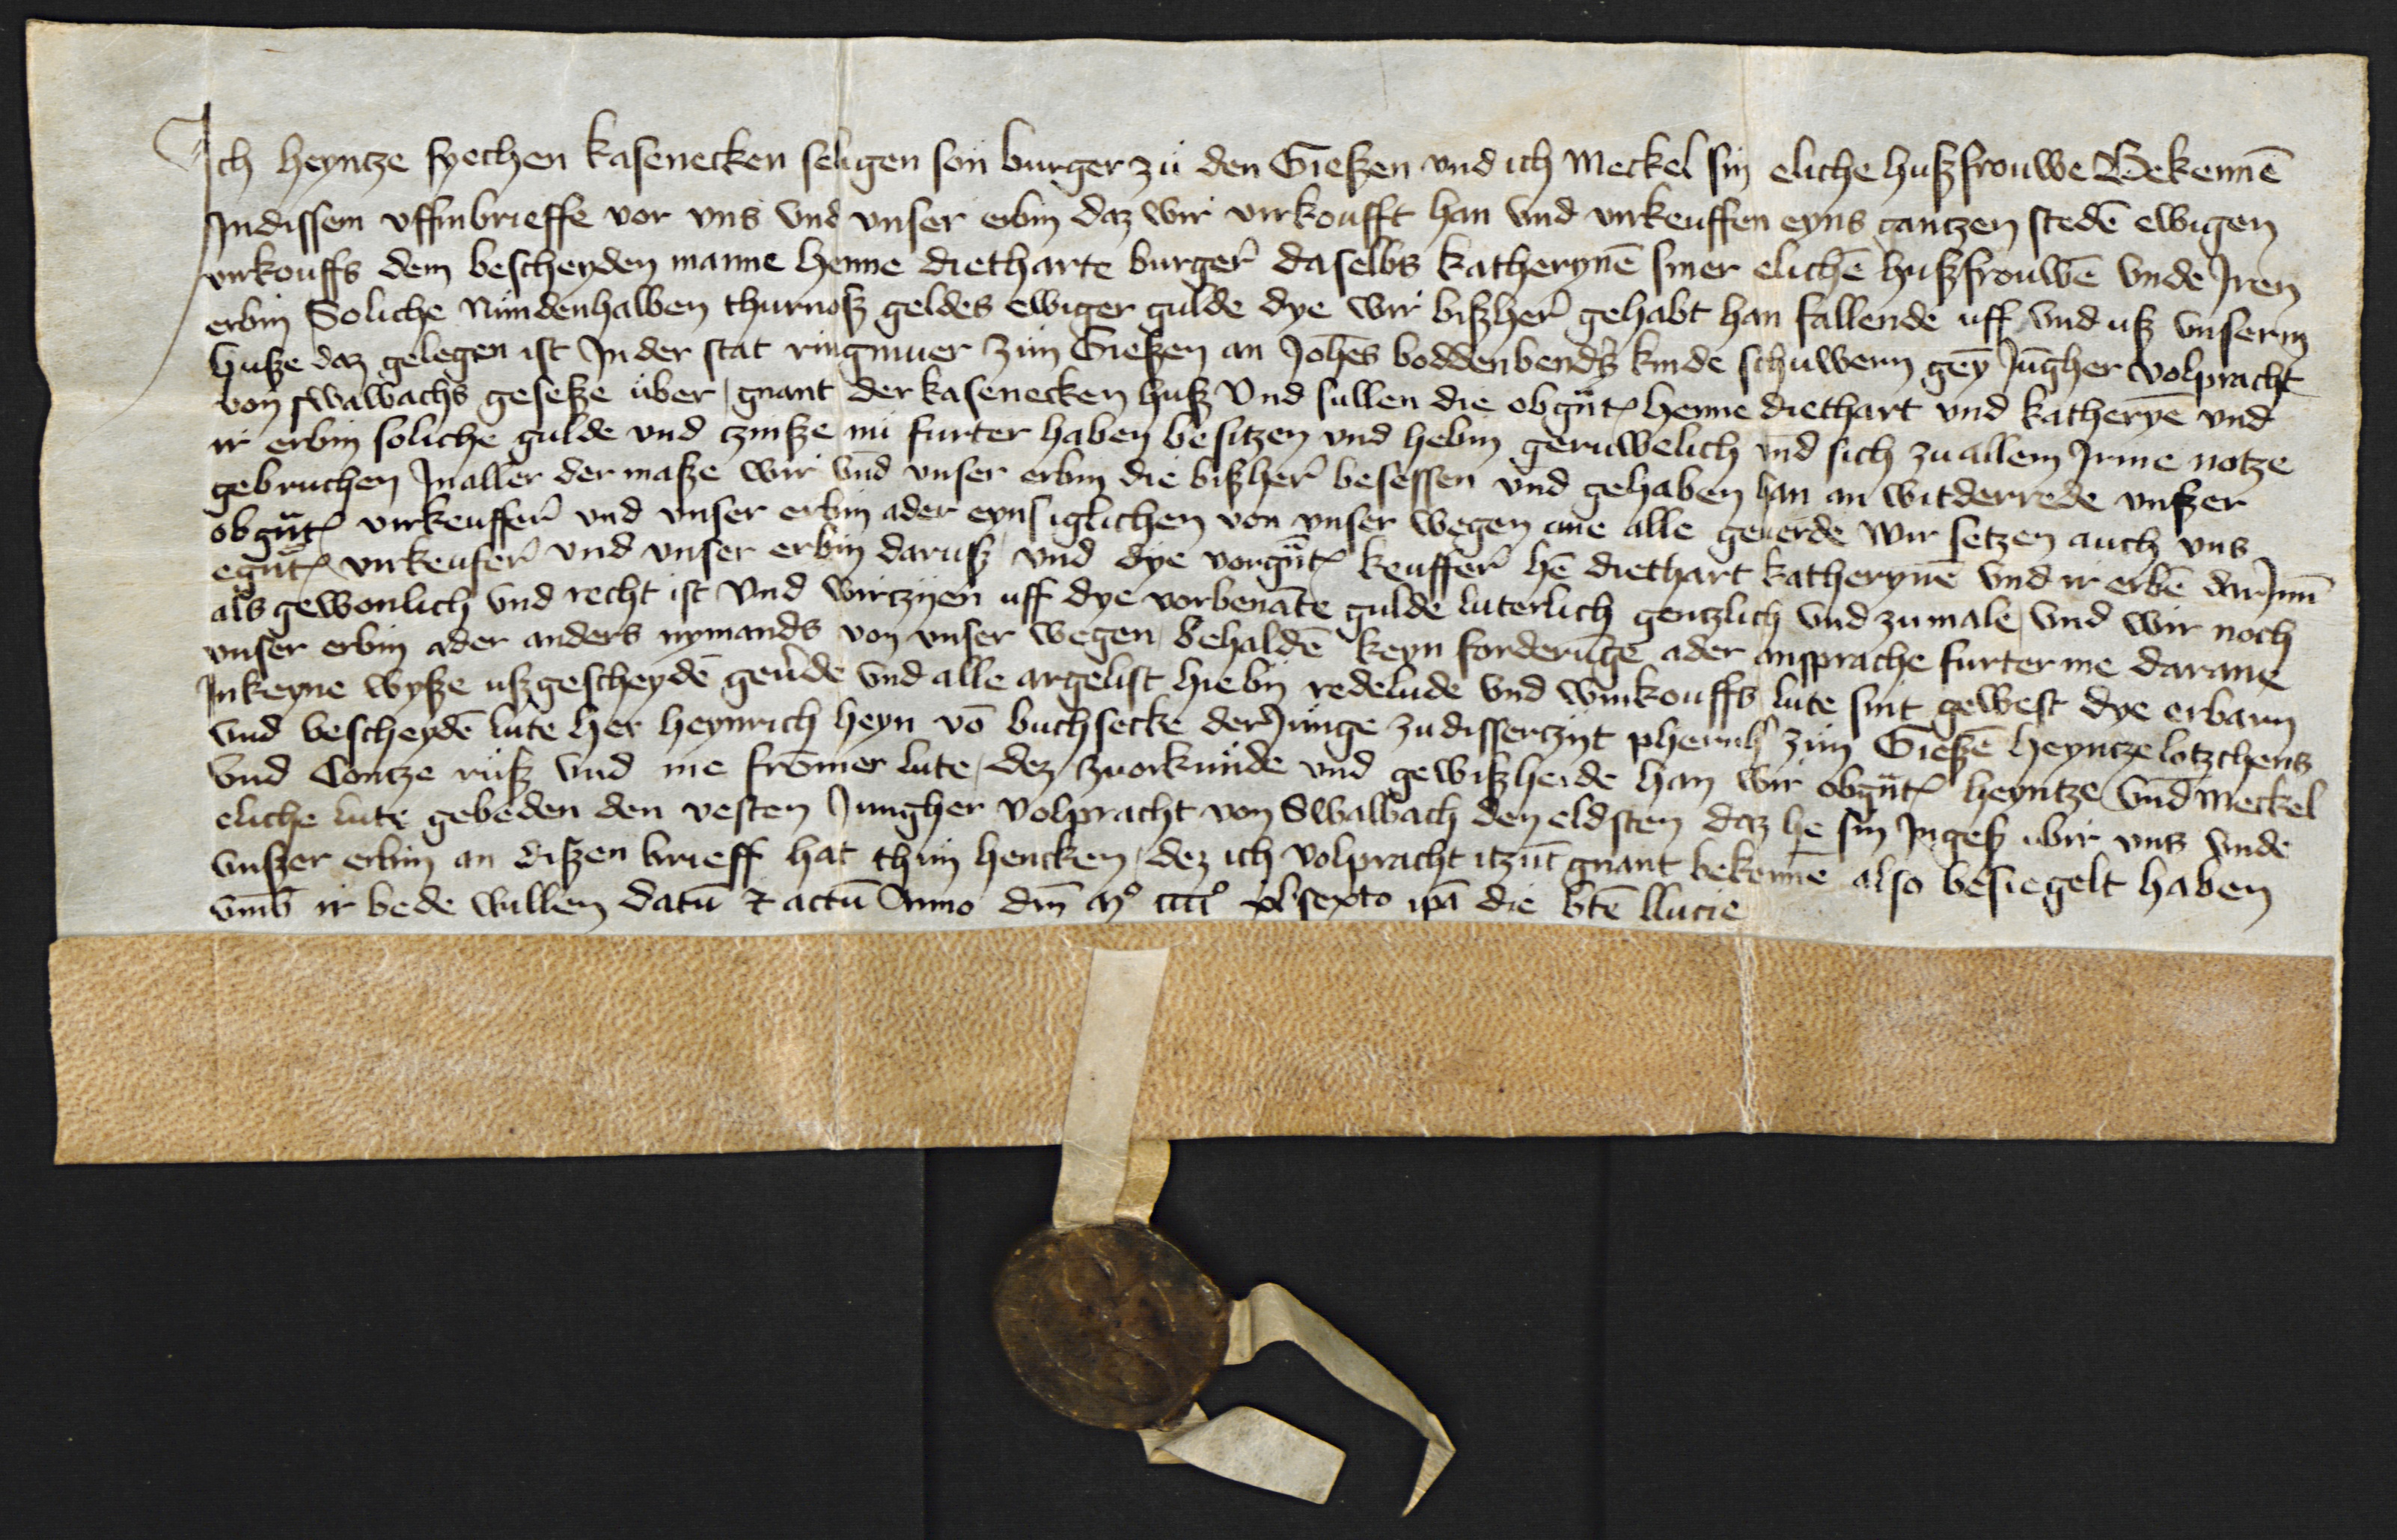 Ich heyntze fyechen kasenecken seligen son burger zü den Gießen vnd ich Meckel sin eliche hußfrouwe Bekennē
Indissem vffinbrieffe vor vns vnd vnser erbin daz wir virkoufft han vnd virkeuffen eyns gantzen stedē ewigen
virkouffs dem bescheyden manne henne dietharte burger daselbs katherynē siner elichē hußfrouwē vnde Iren
erbin Soliche Nündenhalben thurnoß geldes ewiger gulde dye wir bißher gehabt han fallende uff vnd uß vnserm
huße daz gelegen ist In der stat ringmuer züm Gießen an Johēs boddenbenders kinde schuwern gey Jūgher volpracht
von swalwachs geseße über gnant der kasenecken huß Vnd sullen die obgnt henne diethart vnd katherynē vnd
ir erbin soliche gulde vnd czinße nü furter haben besitzen vnd hebin geruwelich vnd sich zu allem Irme notze
gebruchen In aller der maße wir vnd vnser erbin die bißher besessen vnd gehaben han an witderrede vnßer
obgnt virkeuffer vnd vnser erbin ader eynsiglichen von vnser wegen ane alle geuerde Wir setzen auch vns
egnt virkeuffer vnd vnser erbin daruß vnd dye vorgnt keuffer hē diethart katherynē vnd ir erbē darInn
als gewonlich vnd recht ist Vnd wirczijen uff dye vorbenāte gulde luterlich gentzlich vnd zumale vnd wir noch
vnser erbin ader anders nymands von vnser wegen behaldē keyn forderūge ader ansprache furter me darane
Inkeyne wyße ußgescheydē geuerde vnd alle argelist hiebij redelude vnd winkouffs lute sint gewest dye erbarn
vnd bescheydē lute her heynrich heyn vō buchsecke der Junge zu disserczijt pherrer züm Gießē heyntze lotzchens
vnd Contze ruß vnd me frōmer lute dez zuorkunde vnd gewißheide han wir obgnt heyntze vnd Meckel
eliche lute gebeden den vesten Jungher Volpracht von Swalbach den eldsten daz he sin Ingeß ubir vns vnde
vnßer erbin an dißen brieff hat thun hencken dez ich volpracht itzūt gnant bekenne also besiegelt haben
vmb ir bede willen datū & actū Anno dm mº ccccº xlsexto ipā die btē llucie